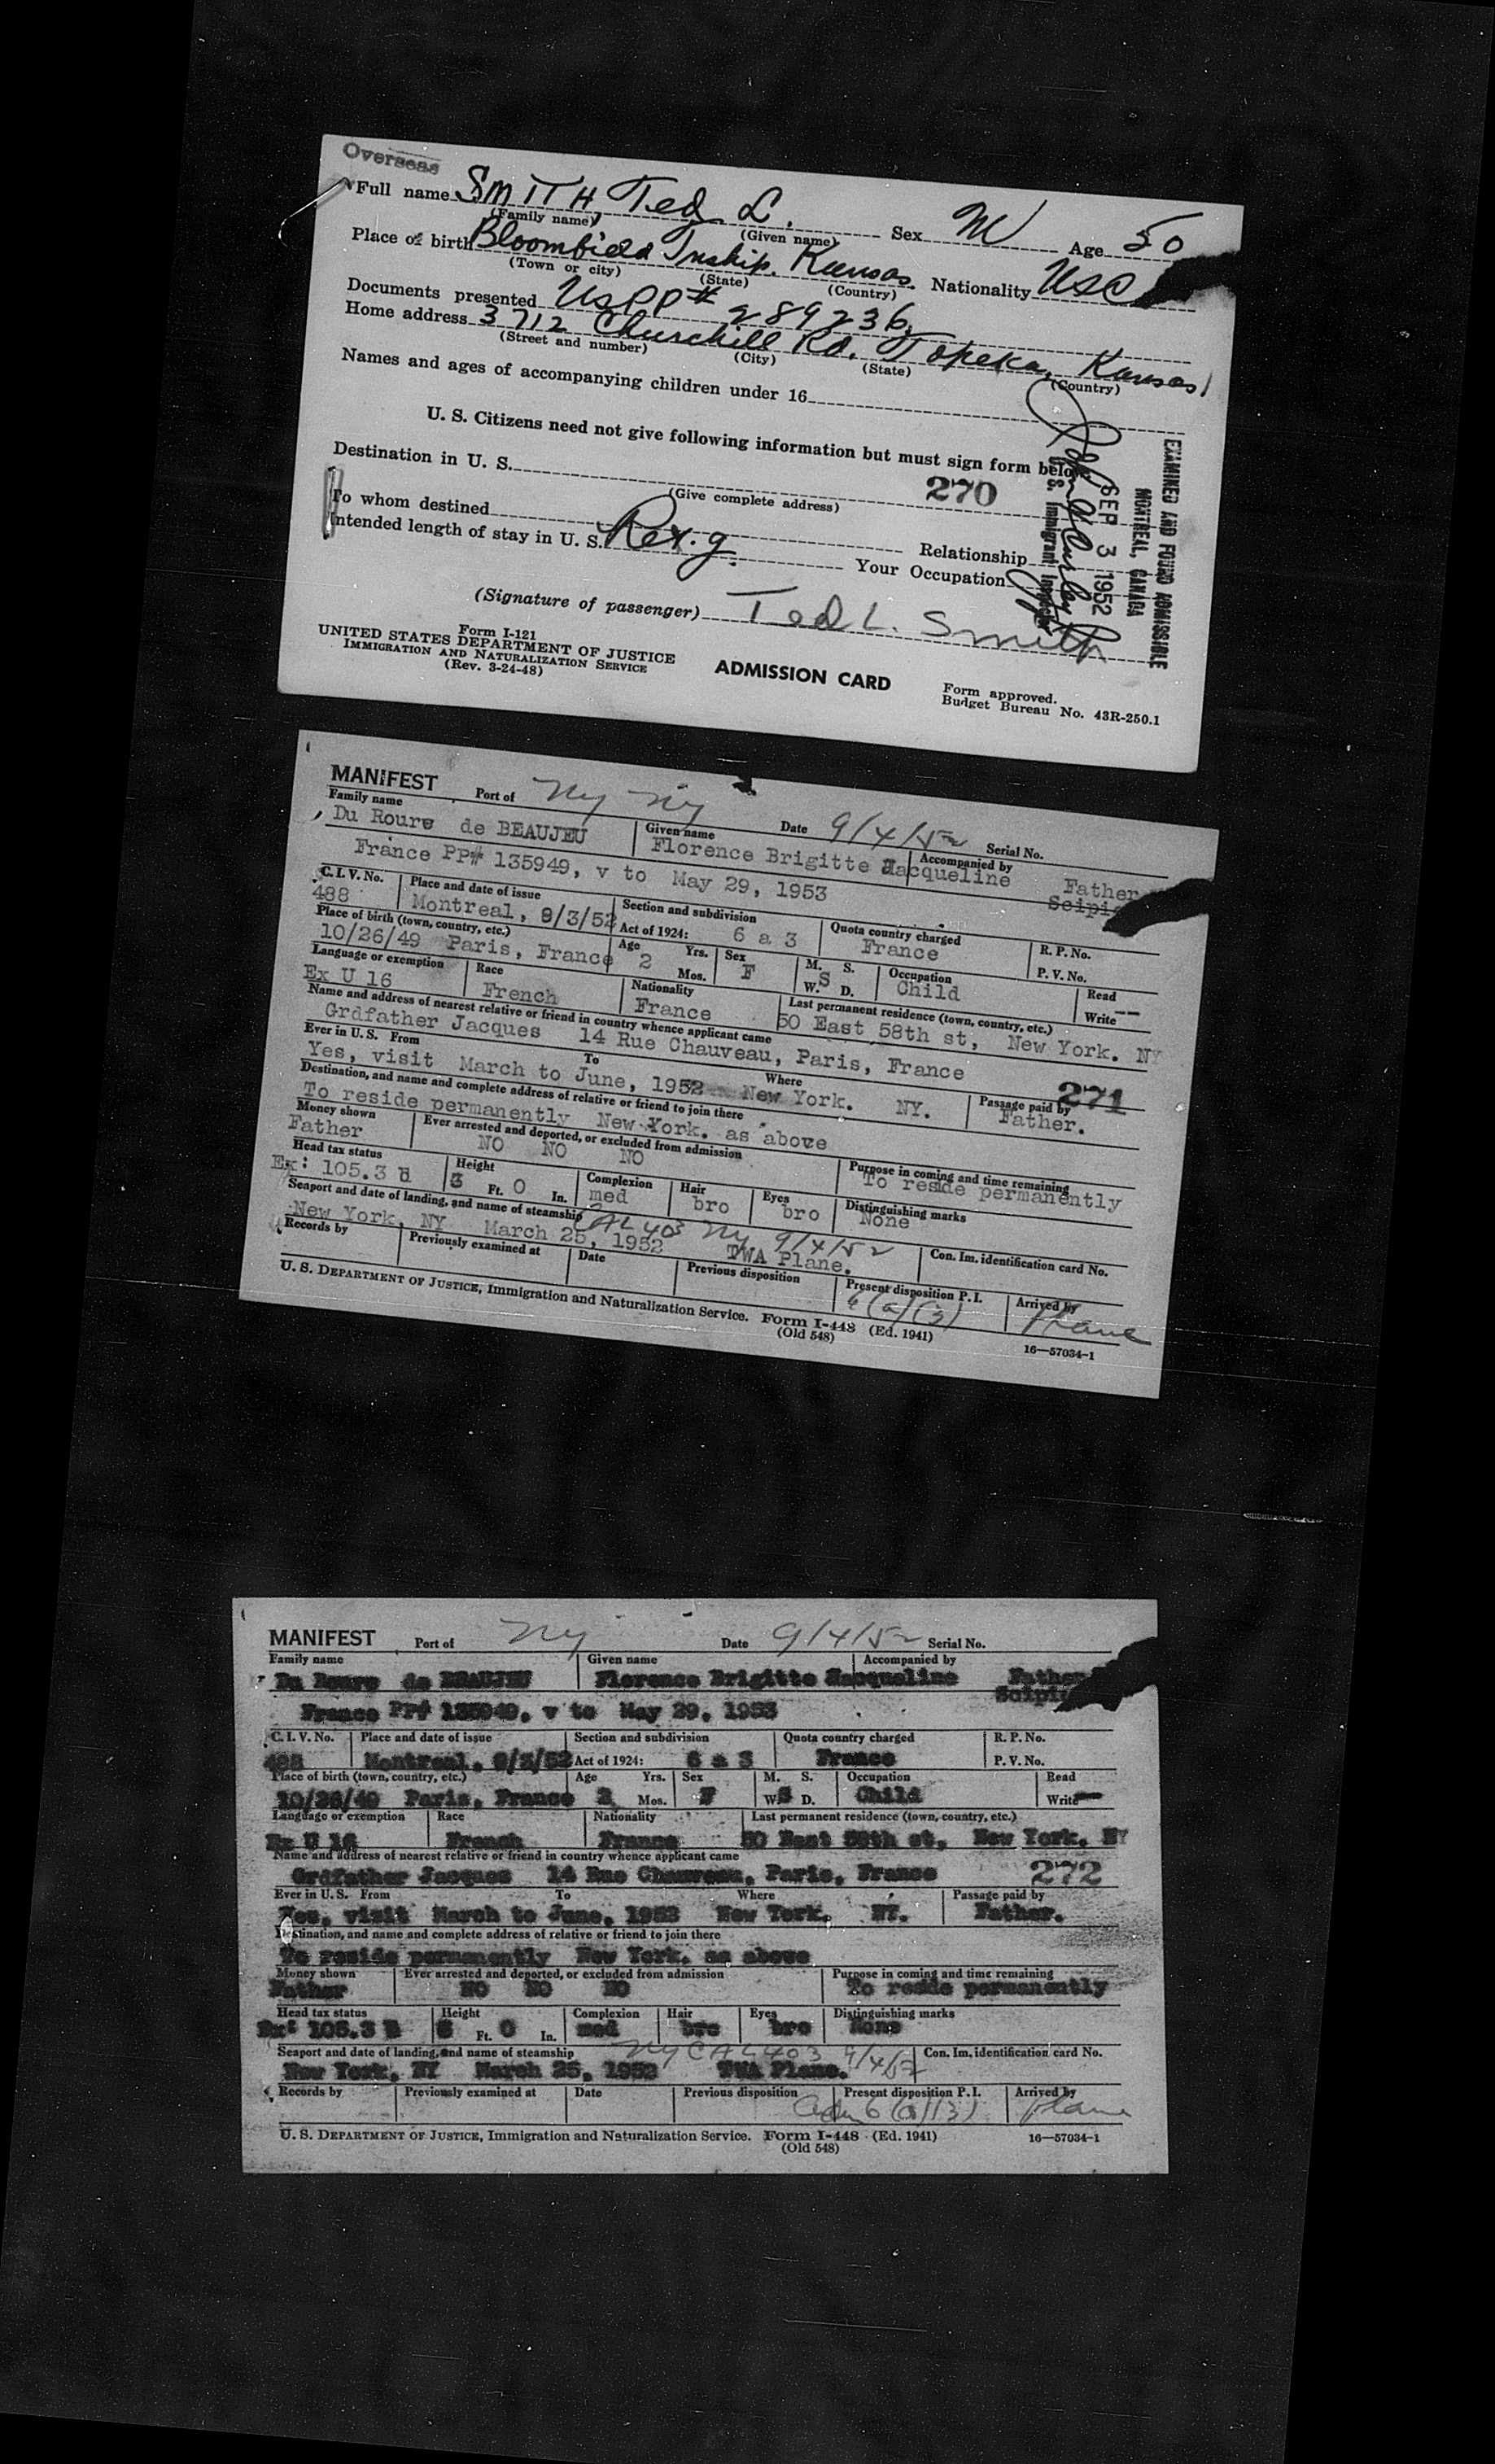 Overseas
Full name SMITH Ted L. Sex M Age 50
(Family name) (Given name)
Place of birth Bloomfield Tnship. Kansas. Nationality USC
(Town or city) (State) (Country)
Documents presented USPP# 289236.
Home address 3712 Churchill Rd. Topeka, Kansas
(Street and number) (City) (State) (Country)
Names and ages of accompanying children under 16
U. S. Citizens need not give following information but must sign form below
Destination in U. S.
(Give complete address) 270
To whom destined Relationship
Intended length of stay in U. S. Your Occupation
(Signature of passenger) Ted L. Smith
EXAMINED AND FOUND ADMISSIBLE
MONTREAL, CANADA
SEP 3 1952
U.S. Immigrant Inspector
Form I-121
UNITED STATES DEPARTMENT OF JUSTICE
IMMIGRATION AND NATURALIZATION SERVICE
(Rev. 3-24-48)
ADMISSION CARD
Form approved.
Budget Bureau No. 43R-250.1
MANIFEST Port of Ny Ny Date 9/4/52 Serial No.
Family name Given name Accompanied by
Du Roure de BEAUJEU Florence Brigitte Jacqueline Father
France PP# 135949, v to May 29, 1953
C. I. V. No. Place and date of issue Section and subdivision Quota country charged R. P. No.
488 Montreal, 9/3/52 Act of 1924: 6 a 3 France P. V. No.
Place of birth (town, country, etc.) Age Yrs. Sex M. S. Occupation Read
10/26/49 Paris, France 2 Mos. F W. S D. Child Write --
Language or exemption Race Nationality Last permanent residence (town, country, etc.)
Ex U 16 French France 50 East 58th st, New York. NY
Name and address of nearest relative or friend in country whence applicant came
Grdfather Jacques 14 Rue Chauveau, Paris, France 271
Ever in U. S. From To Where Passage paid by
Yes, visit March to June, 1952 New York. NY. Father.
Destination, and name and complete address of relative or friend to join there
To reside permanently New York. as above
Money shown Ever arrested and deported, or excluded from admission Purpose in coming and time remaining
Father NO NO NO To reside permanently
Head tax status Height Complexion Hair Eyes Distinguishing marks
Ex: 105.3 3 Ft. 0 In. med bro bro None
Seaport and date of landing, and name of steamship CAL 403 Ny 9/4/52 Con. Im. identification card No.
New York, NY March 25, 1952 TWA Plane.
Records by Previously examined at Date Previous disposition Present disposition P. I. Arrived by
6(a)(3) Plane
U. S. DEPARTMENT OF JUSTICE, Immigration and Naturalization Service. Form I-448 (Ed. 1941)
(Old 548) 16—57034-1
MANIFEST Port of Ny Date 9/4/52 Serial No.
Family name Given name Accompanied by
Du Roure de BEAUJEU Florence Brigitte Jacqueline Father
France PP# 135949, v to May 29, 1953
C. I. V. No. Place and date of issue Section and subdivision Quota country charged R. P. No.
488 Montreal, 9/3/52 Act of 1924: 6 a 3 France P. V. No.
Place of birth (town, country, etc.) Age Yrs. Sex M. S. Occupation Read
10/26/49 Paris, France 2 Mos. F W. S D. Child Write --
Language or exemption Race Nationality Last permanent residence (town, country, etc.)
Ex U 16 French France 50 East 58th st, New York. NY
Name and address of nearest relative or friend in country whence applicant came
Grdfather Jacques 14 Rue Chauveau, Paris, France 272
Ever in U. S. From To Where Passage paid by
Yes, visit March to June, 1952 New York. NY. Father.
Destination, and name and complete address of relative or friend to join there
To reside permanently New York. as above
Money shown Ever arrested and deported, or excluded from admission Purpose in coming and time remaining
Father NO NO NO To reside permanently
Head tax status Height Complexion Hair Eyes Distinguishing marks
Ex: 105.3 3 Ft. 0 In. med bro bro None
Seaport and date of landing, and name of steamship Ny CAL 403 9/4/52 Con. Im. identification card No.
New York, NY March 25, 1952 TWA Plane.
Records by Previously examined at Date Previous disposition Present disposition P. I. Arrived by
Adm 6(a)(3) Plane
U. S. DEPARTMENT OF JUSTICE, Immigration and Naturalization Service. Form I-448 (Ed. 1941)
(Old 548) 16—57034-1